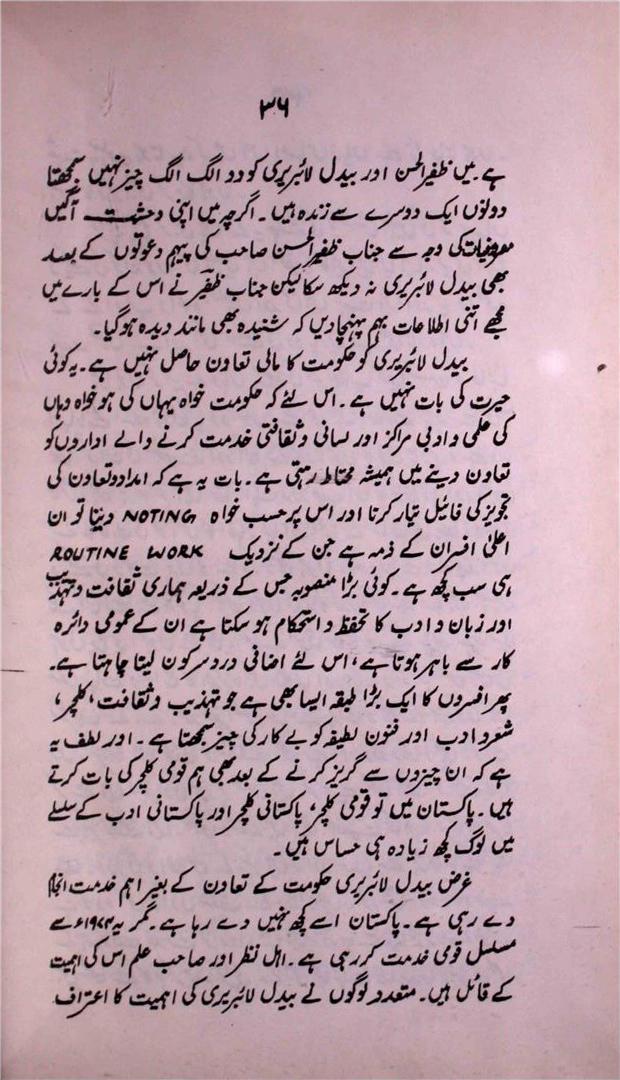 ۳۶
ہے۔ میں ظفیر الحسن اور بیدل لائبریری کو دو الگ الگ چیز نہیں سمجھتا
دولوں ایک دوسرے سے زندہ ہیں۔ اگرچہ میں اپنی وحشت آگیں
مصروفیات کی وجہ سے جناب ظفیر الحسن صاحب کی پیہم دعوتوں کے بعد
بھی بیدل لائبریری نہ دیکھ سکا لیکن جناب ظفیر نے اس کے بارے میں
مجھے اتنی اطلاعات بہم پہنچا دیں کہ شنیدہ بھی مانند دیدہ ہو گیا۔
بیدل لائبریری کو حکومت کا مالی تعاون حاصل نہیں ہے۔ یہ کوئی
حیرت کی بات نہیں ہے۔ اس لئے کہ حکومت خواہ یہاں کی ہو خواہ وہاں
کی علمی و ادبی مراکز اور لسانی و ثقافتی خدمت کرنے والے اداروں کو
تعاون دینے میں ہمیشہ محتاط رہتی ہے۔ بات یہ ہے کہ امداد و تعاون کی
تجویز کی فائیل تیار کرنا اور اس پر حسب خواہ NOTING دینا تو ان
اعلیٰ افسران کے ذمہ ہے جن کے نزدیک ROUTINE WORK
ہی سب کچھ ہے۔ کوئی بڑا منصوبہ جس کے ذریعہ ہماری ثقافت و تہذیب
اور زبان و ادب کا تحفظ و استحکام ہو سکتا ہے ان کے عمومی دائرہ
کار سے باہر ہوتا ہے، اس لئے اضافی دردِ سر کون لینا چاہتا ہے۔
پھر افسروں کا ایک بڑا طبقہ ایسا بھی ہے جو تہذیب و ثقافت، کلچر،
شعر و ادب اور فنون لطیفہ کو بے کار کی چیز سمجھتا ہے۔ اور لطف یہ
ہے کہ ان چیزوں سے گریز کرنے کے بعد بھی ہم قومی کلچر کی بات کرتے
ہیں۔ پاکستان میں تو قومی کلچر، پاکستانی کلچر اور پاکستانی ادب کے سلسلے
میں لوگ کچھ زیادہ ہی حساس ہیں۔
غرض بیدل لائبریری حکومت کے تعاون کے بغیر اہم خدمت انجام
دے رہی ہے۔ پاکستان اسے کچھ نہیں دے رہا ہے۔ مگر یہ ۱۹۷۴ء سے
مسلسل قومی خدمت کر رہی ہے۔ اہل نظر اور صاحب علم اس کی اہمیت
کے قائل ہیں۔ متعدد لوگوں نے بیدل لائبریری کی اہمیت کا اعتراف